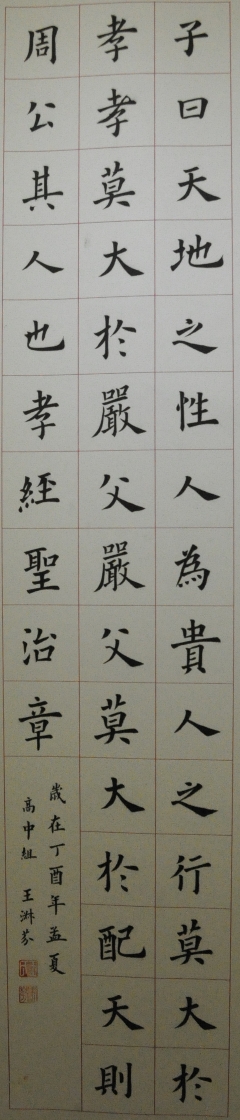 子曰天地之性人為貴人之行莫大於
孝孝莫大於嚴父嚴父莫大於配天則
周公其人也孝經聖治章
歲在丁酉年孟夏
高中組 王淋芬